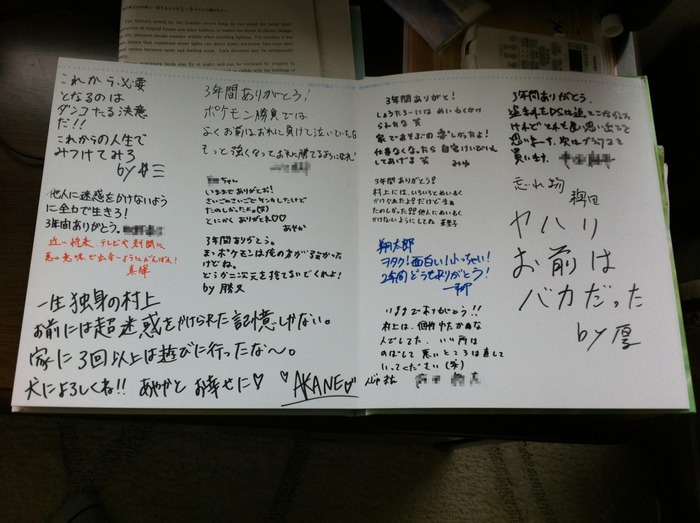 これから必要
となるのは
ダンコたる決意
だ!!
これからの人生で
みつけてみろ
他人に迷惑をかけないよう
に全力で生きろ!
3年間ありがとう。
近い将来、テレビや新聞に
悪い意味で出ないようにがんばれ!
一生独身の村上
お前には超迷惑をかけられた記憶しかない。
家に3回以上は遊びに行ったな〜。
犬によろしくね!! あやかと お幸せに♡
♡AKANE♡
3年間ありがとう!
ポケモン勝負では
よくお前はおれに負けて泣いていたな
もっと強くなっておれに勝てるように
ちゃん
いままでありがとお!
さいごのさいごでケンカしたけど
たのしかったよ。(笑)
とにかくありがとね♡♡
あやか
3年間ありがとう。
まっポケモンは俺の方が強かった
けどね。
どうか二次元を捨てないでくれよ!
by 勝又
3年間ありがと!
しょうたろーには めいわくかけ
られたな 笑
家であそぶの楽しかったよ!
仕事なくなったら 自宅けいびいん
してあげる 笑 みゆ
3年間ありがとう?
村上には、いろいろとめいわく
かけられたよ!だけどまぁ
たのしかった!?他人にめいわく
かけないようにしてね
翔太郎
ヲタク!面白い!ふっちゃい!
2年間どうもありがとう!
いままでありがとう!!
村上は、個性ゆたかな
人でした。いい所は
のばして 悪いところは直して
いってください(笑)
3年間ありがとう。
けれどそれも良い思い出だと
思います。
買います。
忘れ物
ヤハリ
お前は
バカだった
by 厚